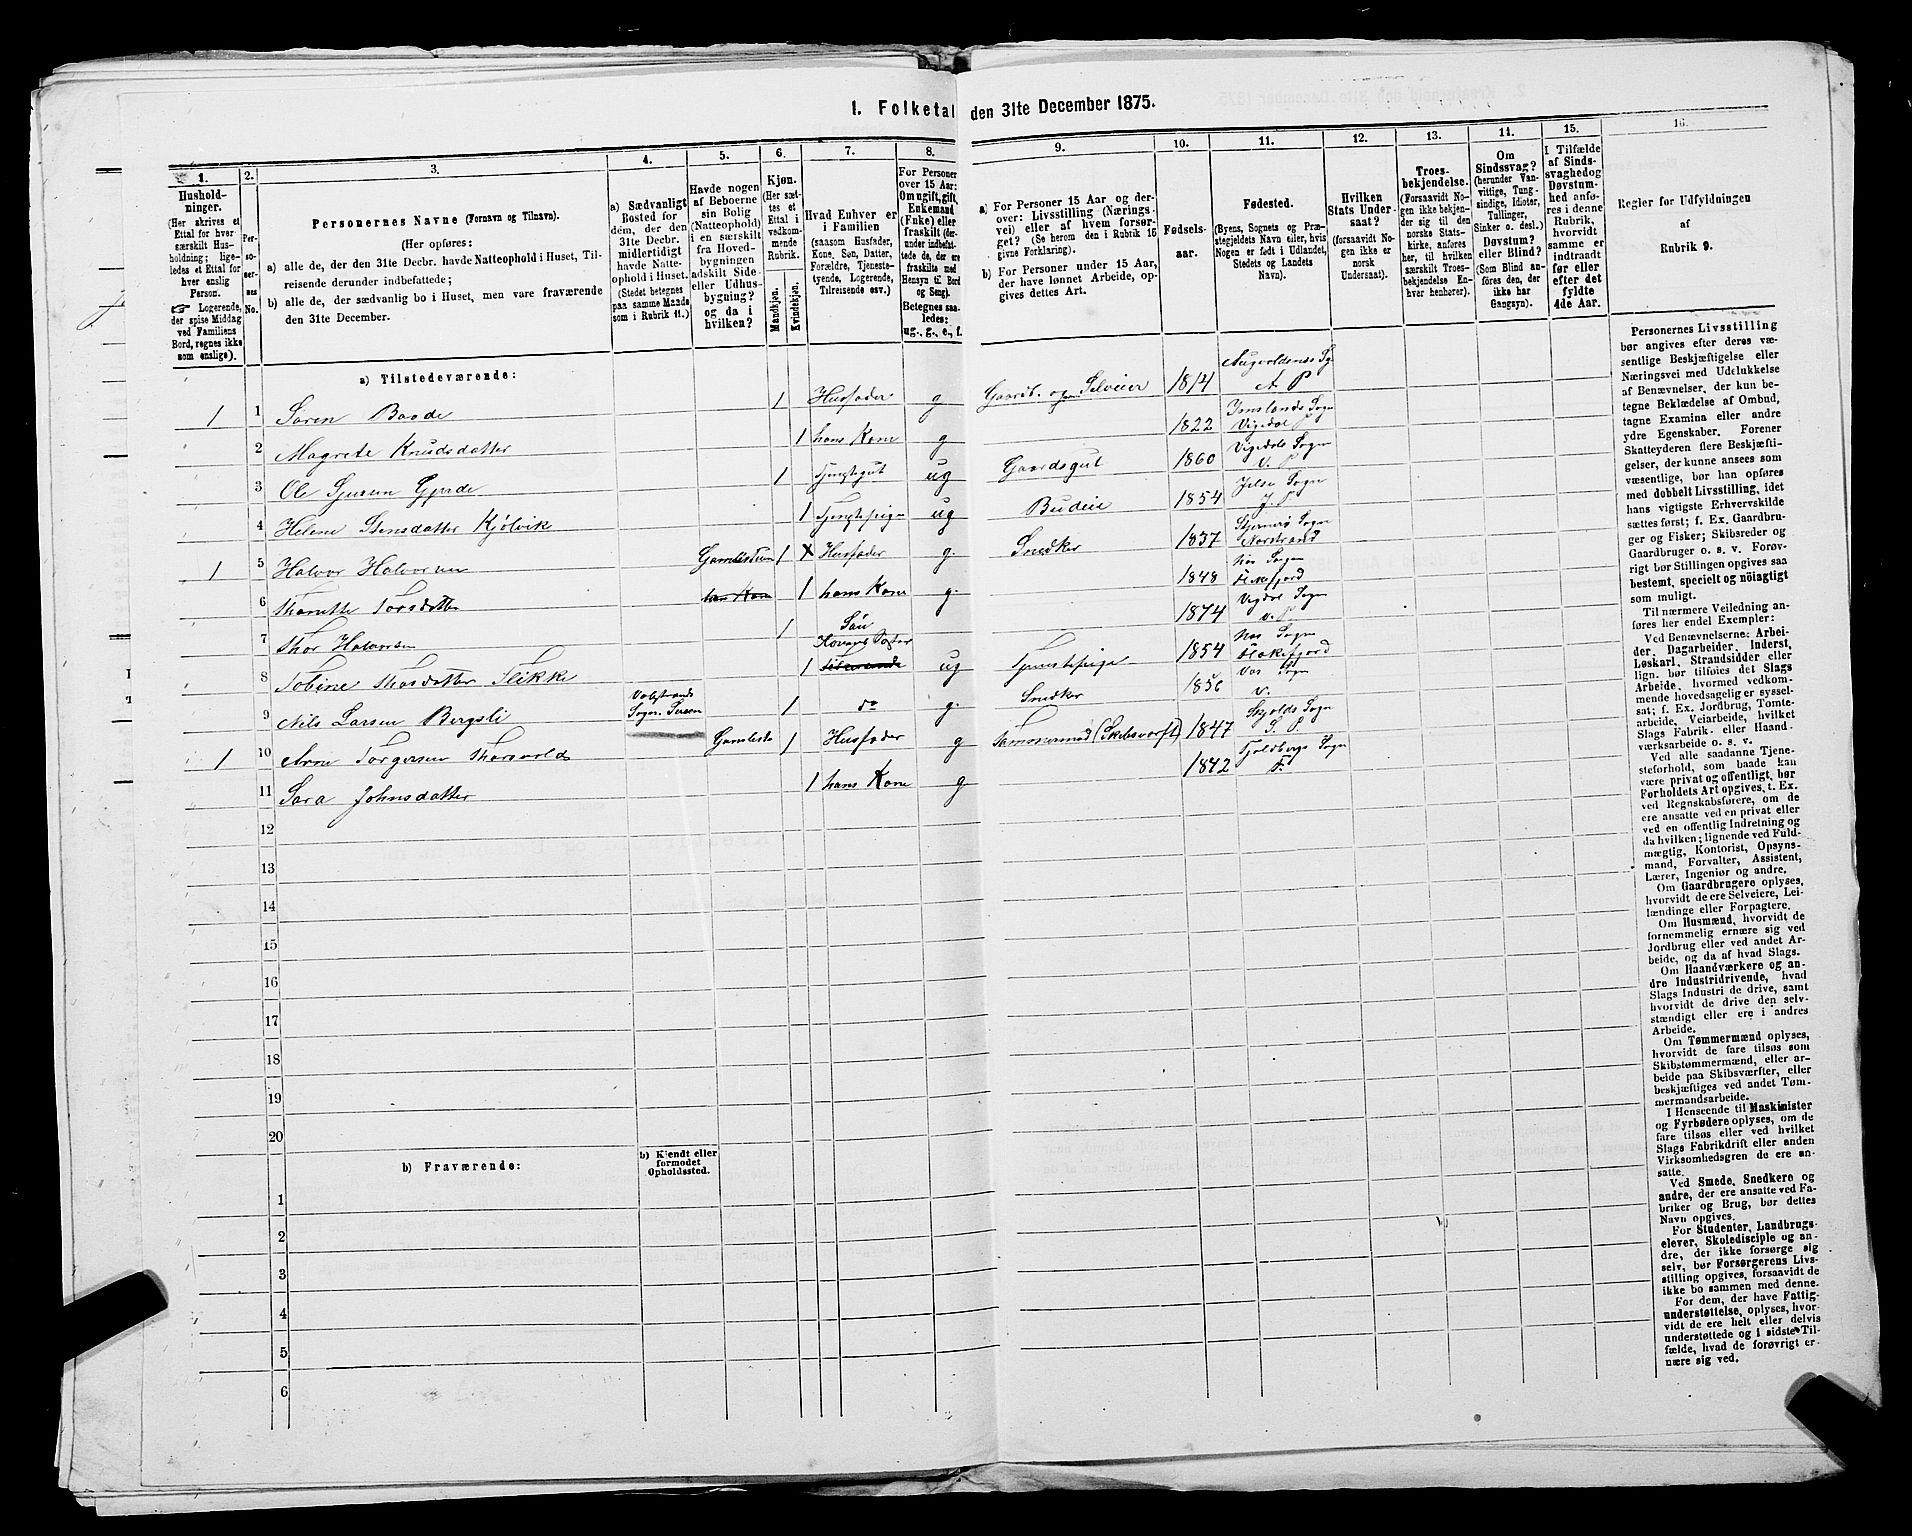 1. Folketal den 31te December 1875.
1.
Hushold-
ninger.
(Her skrives et
Ettal for hver
særskilt Hus-
holdning; lige-
ledes et Ettal for
hver enslig
Person.
☞ Logerende,
der spise Middag
ved Familiens
Bord, regnes ikke
som enslige).
2.
Per-
so-
ner-
nes
No.
3.
Personernes Navne (Fornavn og Tilnavn).
(Her opføres:
a) alle de, der den 31te Decbr. havde Natteophold i Huset, Til-
reisende derunder indbefattede;
b) alle de, der sædvanlig bo i Huset, men vare fraværende
den 31te December.
4.
a) Sædvanligt
Bosted for
dem, der den
31te Decbr.
midlertidigt
havde Natte-
ophold i Huset.
(Stedet betegnes
paa samme Maade
som i Rubrik 11.)
5.
Havde nogen
af Beboerne
sin Bolig
(Natteophold)
i en særskilt
fra Hoved-
bygningen
adskilt Side-
eller Udhus-
bygning?
og da i
hvilken?
6.
Kjøn.
(Her sæt-
tes et
Ettal i
vedkom-
mende
Rubrik.)
Mandkjøn.
Kvindekjøn.
7.
Hvad Enhver er
i Familien
(saasom Husfader,
Kone, Søn, Datter,
Forældre, Tjeneste-
tyende, Logerende,
Tilreisende osv.)
8.
For Personer
over 15 Aar:
Om ugift, gift,
Enkemand
(Enke) eller
fraskilt (der-
under indbefat-
tede de, der ere
fraskilte med
Hensyn til Bord
og Seng).
Betegnes saa-
ledes:
ug., g., e., f.
9.
a) For Personer 15 Aar og der-
over: Livsstilling (Nærings-
vei) eller af hvem forsør-
get? (Se herom den i Rubrik 16
givne Forklaring).
b) For Personer under 15 Aar,
der have lønnet Arbeide, op-
gives dettes Art.
10.
Fødsels-
aar.
11.
Fødested.
(Byens, Sognets og Præ-
stegjeldets Navn eller, hvis
Nogen er født i Udlandet,
Stedets og Landets
Navn).
12.
Hvilken
Stats Under-
saat?
(forsaavidt No-
gen ikke er
norsk
Undersaat).
13.
Troes-
bekjendelse.
(Forsaavidt No-
gen ikke bekjen-
der sig til den
norske Stats-
kirke, anføres
her, til hvilken
særskilt Troes-
bekjendelse En-
hver henhører).
14.
Om
Sindssvag?
(herunder Van-
vittige, Tung-
sindige, Idioter,
Tullinger,
Sinker o. desl.)
Døvstum?
eller Blind?
(Som Blind an-
føres den, der
ikke har
Gangsyn).
15.
I Tilfælde
af Sinds-
svaghed og
Døvstum-
hed anfø-
res i denne
Rubrik,
hvorvidt
samme er
indtraadt
før eller
efter det
fyldte
4de Aar.
16.
Regler for Udfyldningen
af
Rubrik 9.
a) Tilstedeværende:
1 1 Søren Baade 1 Husfader g Gaardb. og Selveier 1814 Augvoldsnes Sg A P
2 Magrete Knudsdatter 1 hans Kone g 1822 Imslands Sogn Vigedal P
3 Ole Sjursen Gjerde 1 Tjenstegut ug Gaardsgut 1860 Vigedals Sogn V. P
4 Helene Stensdatter Kjølvik 1 Tjenstepige ug Budeie 1854 Jelse Sogn J. P
1 5 Halvor Halvorsen Gamlestuen 1 Husfader g. Snedker 1837 Sogn
6 Torsdatter hans Kone 1 hans Kone g. 1848 Sogn
7 Thor Halvorsen 1 Søn 1874 Vigdal Sogn V. P
8 Tobine Thorsdatter Flikke 1 Konens Søster ug Tjenstepige 1854 Sogn
9 Nils Larsen Bergsli Sogn 1 do g. Snedker 1856 Sogn V.
1 10 Arne Torgersen Thorvold 1 Husfader g Tømmermand (Skibsværft) 1847 Skjolds Sogn S. P.
11 Sara Johnsdatter 1 hans Kone g 1842 Sogn F.
12
13
14
15
16
17
18
19
20
b) Fraværende:
b) Kjendt eller
formodet
Opholdssted.
1
2
3
4
5
6
Personernes Livsstilling
bør angives efter deres væ-
sentlige Beskjæftigelse eller
Næringsvei med Udelukkelse
af Benævnelser, der kun be-
tegne Beklædelse af Ombud,
tagne Examina eller andre
ydre Egenskaber. Forener
Skatteyderen flere Beskjæfti-
gelser, der kunne ansees som
væsentlige, bør han opføres
med dobbelt Livsstilling, idet
hans vigtigste Erhvervskilde
sættes først; f. Ex. Gaardbru-
ger og Fisker; Skibsreder og
Gaardbruger o. s. v. Forøv-
rigt bør Stillingen opgives saa
bestemt, specielt og nöiagtigt
som muligt.
Til nærmere Veiledning an-
føres her endel Exempler:
Ved Benævnelserne: Arbei-
der, Dagarbeider, Inderst,
Løskarl, Strandsidder eller
lign. bør tilføies det Slags
Arbeide, hvormed vedkom-
mende hovedsagelig er syssel-
sat; f. Ex. Jordbrug, Tomte-
arbeide, Veiarbeide, hvilket
Slags Fabrik- eller Haand-
værksarbeide o. s. v.
Ved alle saadanne Tjene-
steforhold, som baade kan
være privat og offentligt, bør
Forholdets Art opgives, t. Ex.
ved Regnskabsførere, om de
ere ansatte ved en privat eller
ved en offentlig Indretning og
da hvilken; lignende ved Fuld-
mægtig, Kontorist, Opsyns-
mand, Forvalter, Assistent,
Lærer, Ingeniør og andre.
Om Gaardbrugere oplyses,
hvorvidt de ere Selveiere, Lei-
lændinge eller Forpagtere.
Om Husmænd, hvorvidt de
fornemmelig ernære sig ved
Jordbrug eller ved andet Ar-
beide, og da af hvad Slags.
Om Haandværkere og an-
dre Industridrivende, hvad
Slags Industri de drive, samt
hvorvidt de drive den selv-
stændigt eller ere i andres
Arbeide.
Om Tømmermænd oplyses,
hvorvidt de fare tilsøs som
Skibstømmermænd, eller ar-
beide paa Skibsværfter, eller
beskjæftiges ved andet Tøm-
mermandsarbeide.
I Henseende til Maskinister
og Fyrbødere oplyses, om de
fare tilsøs eller ved hvilket
Slags Fabrikdrift eller anden
Virksomhedsgren de ere an-
satte.
Ved Smede, Snedkere og
andre, der ere ansatte ved Fa-
briker og Brug, bør dettes
Navn opgives.
For Studenter, Landbrugs-
elever, Skoledisciple og an-
dre, der ikke forsørge sig
selv, bør Forsørgerens Livs-
stilling opgives, forsaavidt de
ikke bo sammen med denne.
For dem, der have Fattig-
understøttelse, oplyses, hvor-
vidt de ere helt eller delvis
understøttede og i sidste Til-
fælde, hvad de forøvrigt er-
nære sig ved.